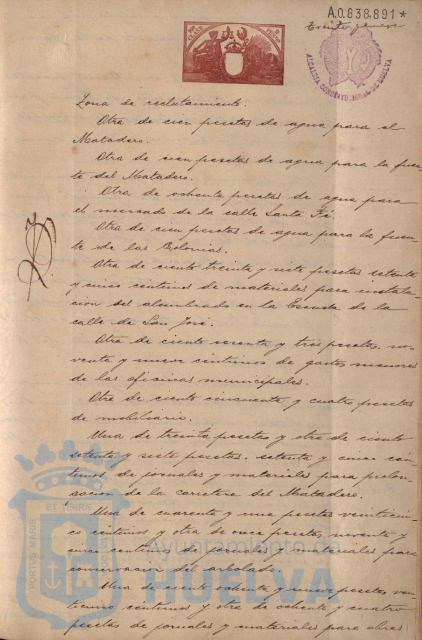 A.0.838.891*
ALCALDIA CONSTITUCIONAL DE HUELVA
Zona de reclutamiento.
Otra de cien pesetas de agua para el
Matadero.
Otra de cien pesetas de agua para la fuen-
te del Matadero.
Otra de ochenta pesetas de agua para
el mercado de la calle Santa Fé.
Otra de cien pesetas de agua para la fuen-
te de las Colonias.
Otra de ciento treinta y siete pesetas setenta
y cinco centimos de materiales para instala-
cion del alumbrado en la Escuela de la
calle de San José.
Otra de ciento sesenta y tres pesetas, no-
venta y nueve centimos de gastos menores
de las oficinas municipales.
Otra de ciento cincuenta y cuatro pesetas
de mobiliario.
Una de treinta pesetas y otra de ciento
setenta y siete pesetas, setenta y cinco cén-
timos de jornales y materiales para prolon-
gacion de la carretera del Matadero.
Una de cuarenta y una pesetas veinticin-
co centimos y otra de once pesetas, noventa y
cinco centimos de jornales y materiales para
conservacion del arbolado.
Una de ciento ochenta y nueve pesetas vein-
tiuno centimos y otra de ochenta y cuatro
pesetas de jornales y materiales para obras
PORTUS MARIS
ET TERRÆ
Ayuntamiento de
HUELVA